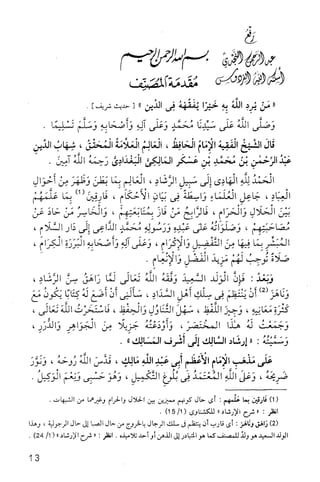 رفع
عبد الرحمن النجدي
أسكنه الله الفردوس
بسم الله الرحمن الرحيم
مُقَدِّمَةُ الْمُصَنِّفِ
« مَنْ يُرِدِ اللَّهُ بِهِ خَيْرًا يُفَقِّهْهُ فِي الدِّينِ » [ حديث شريف ] .
وَصَلَّى اللَّهُ عَلَى سَيِّدِنَا مُحَمَّدٍ وَعَلَى آلِهِ وَأَصْحَابِهِ وَسَلَّمَ تَسْلِيمًا .
قَالَ الشَّيْخُ الْفَقِيهُ الْإِمَامُ الْحَافِظُ ، الْعَالِمُ الْعَلَّامَةُ الْمُحَقِّقُ ، شِهَابُ الدِّينِ
عَبْدُ الرَّحْمَنِ بْنُ مُحَمَّدِ بْنِ عَسْكَرٍ الْمَالِكِيُّ الْبَغْدَادِيُّ رَحِمَهُ اللَّهُ آمِينَ .
الْحَمْدُ لِلَّهِ الْهَادِي إِلَى سَبِيلِ الرَّشَادِ ، الْعَالِمِ بِمَا بَطَنَ وَظَهَرَ مِنْ أَحْوَالِ
الْعِبَادِ ، جَاعِلِ الْعُلَمَاءِ وَاسِطَةً فِي بَيَانِ الْأَحْكَامِ ، فَارِقِينَ (1) بِمَا عَلَّمَهُمْ
بَيْنَ الْحَلَالِ وَالْحَرَامِ ، فَالرَّابِحُ مَنْ فَازَ بِمُتَابَعَتِهِمْ ، وَالْخَاسِرُ مَنْ حَادَ عَنْ
مُصَاحَبَتِهِمْ ، وَصَلَوَاتُهُ عَلَى عَبْدِهِ وَرَسُولِهِ مُحَمَّدٍ الدَّاعِي إِلَى دَارِ السَّلَامِ ،
الْمُبَشِّرِ بِمَا فِيهَا مِنَ التَّفْضِيلِ وَالْإِكْرَامِ ، وَعَلَى آلِهِ وَأَصْحَابِهِ الْبَرَرَةِ الْكِرَامِ ،
صَلَاةً تُوجِبُ لَهُمْ مَزِيدَ الْفَضْلِ وَالْإِنْعَامِ .
وَبَعْدُ : فَإِنَّ الْوَلَدَ السَّعِيدَ وَفَّقَهُ اللَّهُ تَعَالَى لَمَّا رَاهَقَ سِنَّ الرَّشَادِ ،
وَنَاهَزَ (2) أَنْ يَنْتَظِمَ فِي سِلْكِ أَهْلِ السَّدَادِ ، سَأَلَنِي أَنْ أَضَعَ لَهُ كِتَابًا يَكُونُ مَعَ
كَثْرَةِ مَعَانِيهِ ، وَجِيزَ اللَّفْظِ ، سَهْلَ التَّنَاوُلِ وَالْحِفْظِ ، فَاسْتَخَرْتُ اللَّهَ تَعَالَى ،
وَجَمَعْتُ لَهُ هَذَا الْمُخْتَصَرَ ، وَأَوْدَعْتُهُ جَزِيلًا مِنَ الْجَوَاهِرِ وَالدُّرَرِ ،
وَسَمَّيْتُهُ : « إِرْشَادَ السَّالِكِ إِلَى أَشْرَفِ الْمَسَالِكِ »
عَلَى مَذْهَبِ الْإِمَامِ الْأَعْظَمِ أَبِي عَبْدِ اللَّهِ مَالِكٍ ، قَدَّسَ اللَّهُ رُوحَهُ ، وَنَوَّرَ
ضَرِيحَهُ ، وَعَلَى اللَّهِ الْمُعْتَمَدُ فِي بُلُوغِ التَّكْمِيلِ ، وَهُوَ حَسْبِي وَنِعْمَ الْوَكِيلُ .
(1) فَارِقِينَ بِمَا عَلَّمَهُمْ : أي حال كونهم مميزين بين الحلال والحرام وغيرهما من الشبهات .
انظر : « شرح الإرشاد » للكشناوي (1/ 15) .
(2) رَاهَقَ وَنَاهَزَ : أي قارب أن ينتظم في سلك الرجال بالخروج من حال الصبا إلى حال الرجولية ، وهذا
الولد السعيد هو ولدٌ للمصنف كما هو المتبادر إلى الذهن أو أحد تلاميذه . انظر : « شرح الإرشاد » (1/ 24) .
13